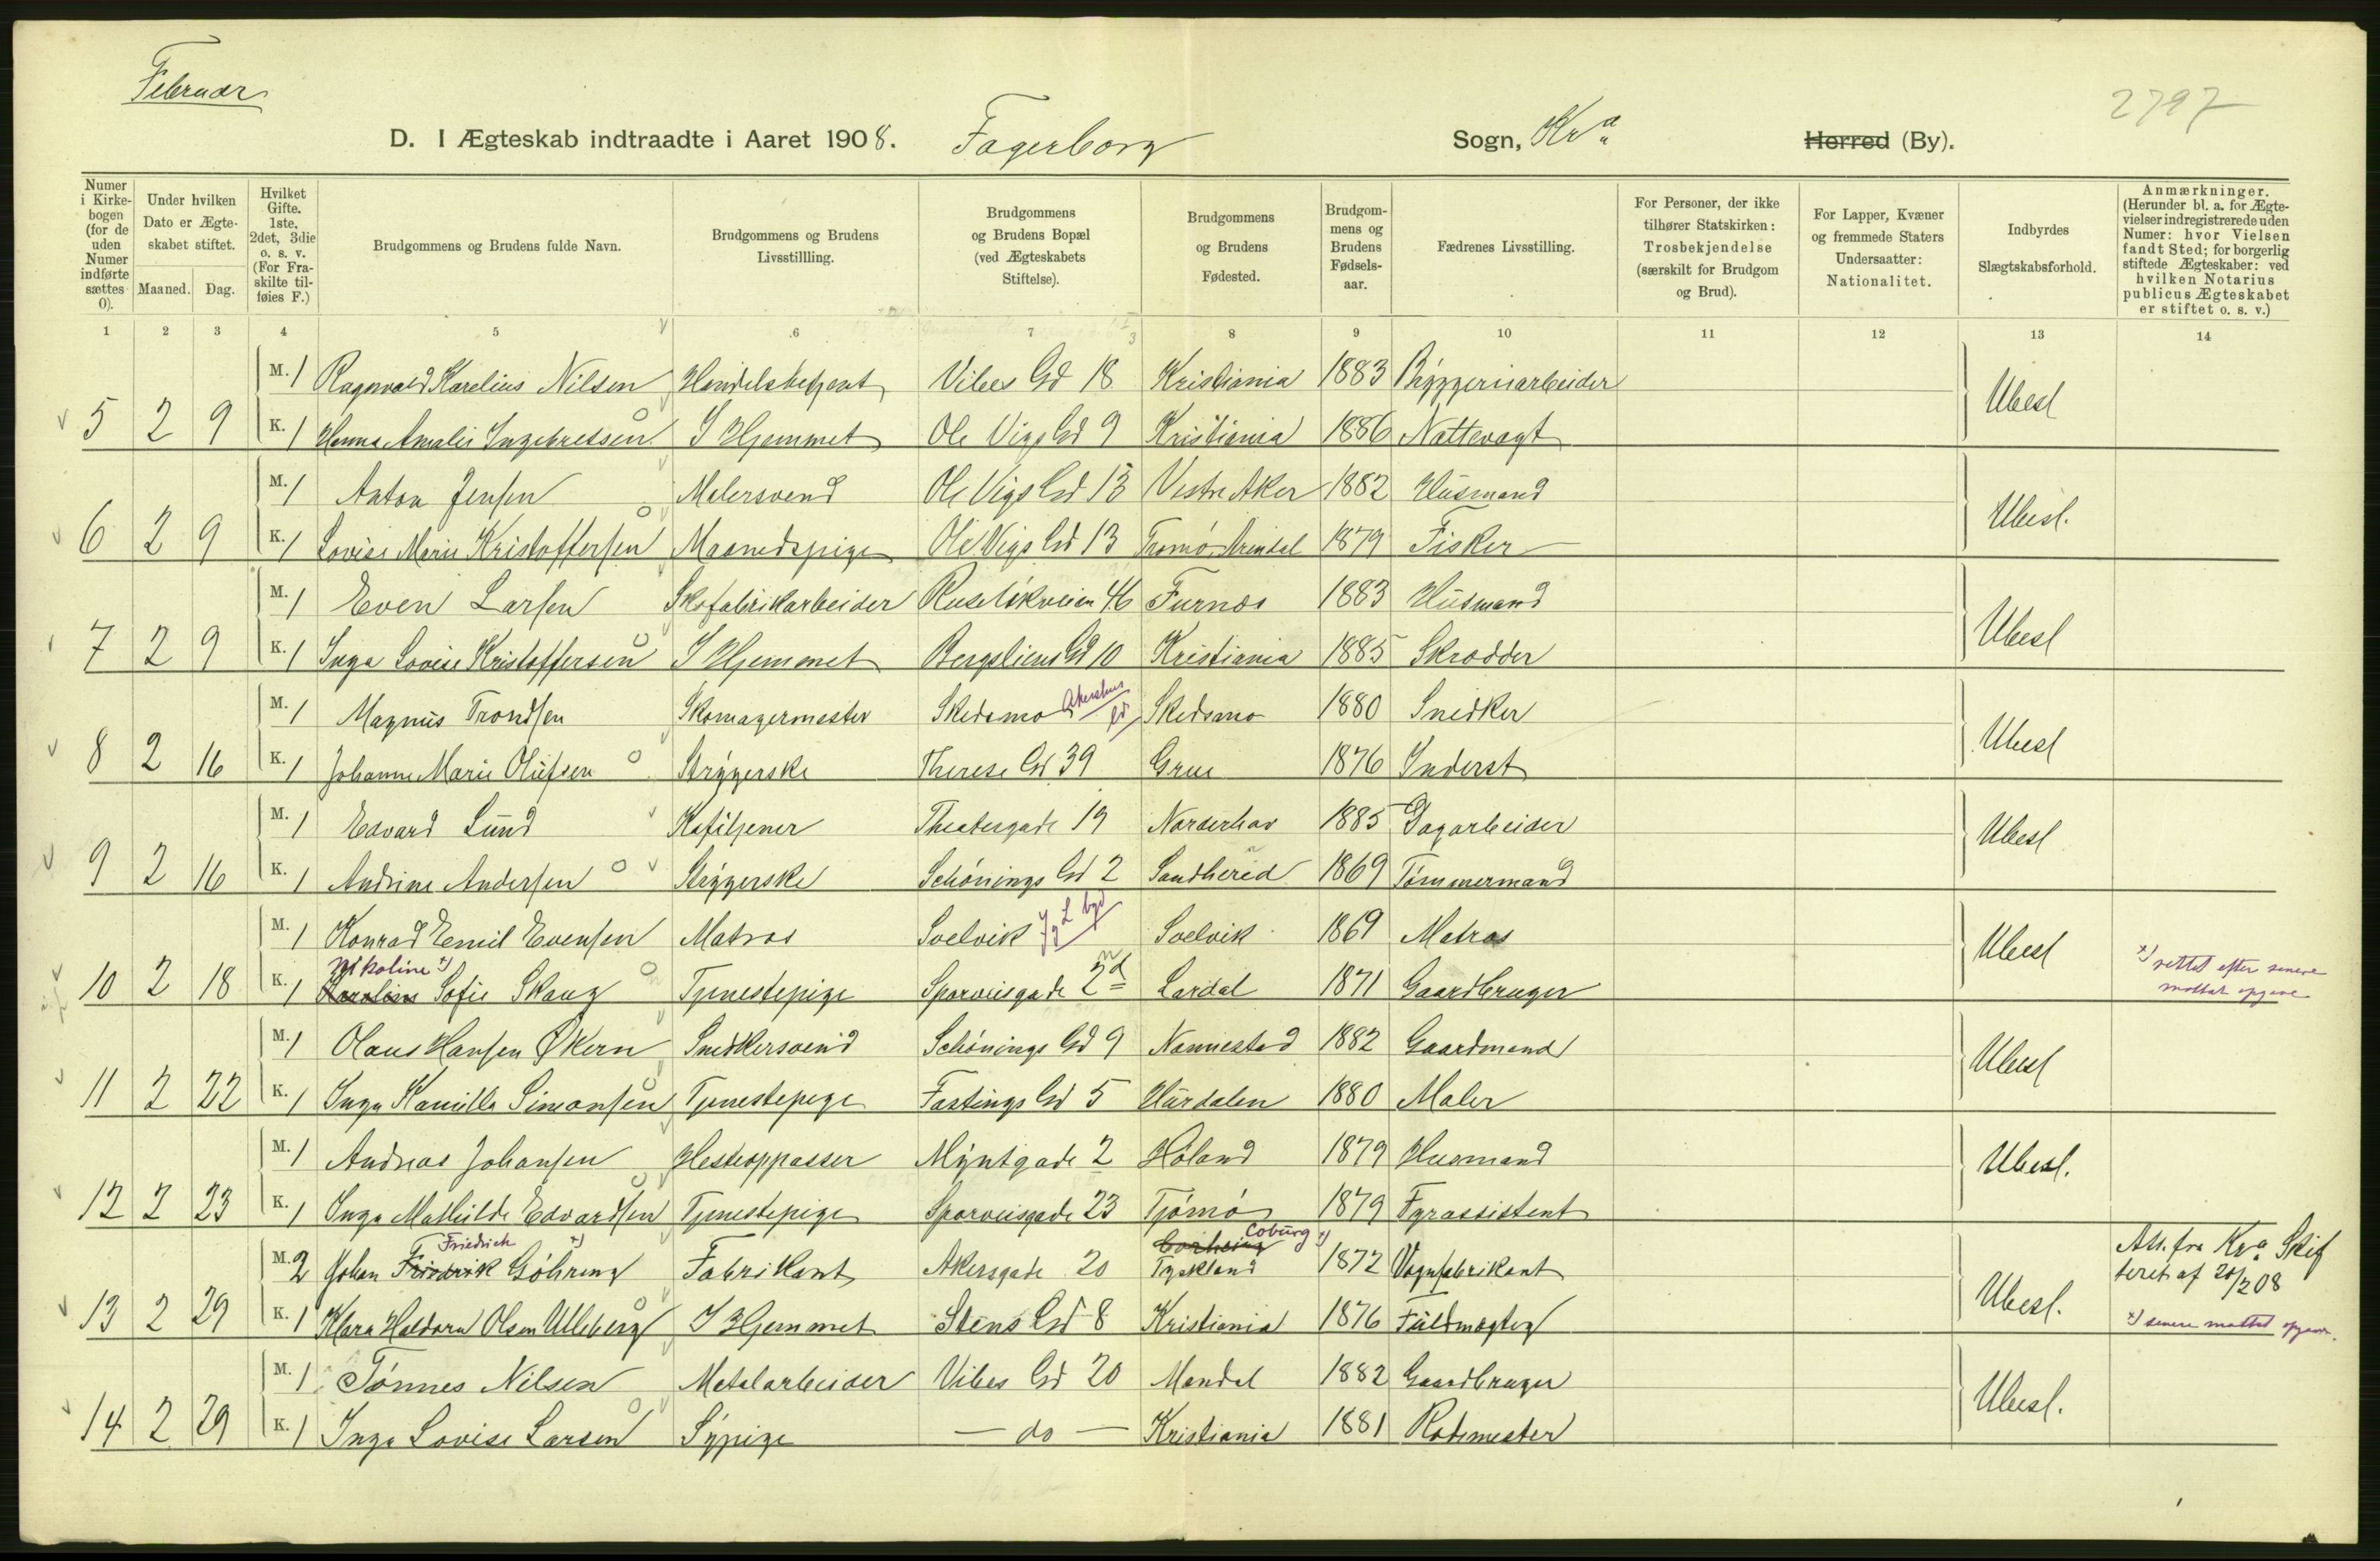 Februar
2797
D. I Ægteskab indtraadte i Aaret 1908. Fagerborg Sogn, Kra Herred (By).
Numer i Kirkebogen (for de uden Numer indførte sættes 0).
Under hvilken Dato er Ægteskabet stiftet.
Maaned. Dag.
Hvilket Gifte. 1ste, 2det, 3die o. s. v. (For Fraskilte tilføies F.)
Brudgommens og Brudens fulde Navn.
Brudgommens og Brudens Livsstillling.
Brudgommens og Brudens Bopæl (ved Ægteskabets Stiftelse).
Brudgommens og Brudens Fødested.
Brudgommens og Brudens Fødselsaar.
Fædrenes Livsstilling.
For Personer, der ikke tilhører Statskirken: Trosbekjendelse (særskilt for Brudgom og Brud).
For Lapper, Kvæner og fremmede Staters Undersaatter: Nationalitet.
Indbyrdes Slægtskabsforhold.
Anmærkninger. (Herunder bl. a. for Ægtevielser indregistrerede uden Numer: hvor Vielsen fandt Sted; for borgerlig stiftede Ægteskaber: ved hvilken Notarius publicus Ægteskabet er stiftet o. s. v.)
1 2 3 4 5 6 7 8 9 10 11 12 13 14
M. 1 Ragnvald Karelius Nilsen Handelsbetjent Vibes Gd 18 Kristiania 1883 Bryggeriarbeider
5 2 9 K. 1 Hanna Amalie Ingebretsen I Hjemmet Ole Vigs Gd 9 Kristiania 1886 Nattevagt Ubesl
M. 1 Anton Jensen Malersvend Ole Vigs Gd 13 Vestre Aker 1882 Husmand
6 2 9 K. 1 Lovise Marie Kristoffersen Maanedspige Ole Vigs Gd 13 Tromø Arendal 1879 Fisker Ubesl.
M. 1 Even Larsen Skofabrikarbeider Ruseløkveien 46 Furnæs 1883 Husmand
7 2 9 K. 1 Inga Lovise Kristoffersen I Hjemmet Bergsliens Gd 10 Kristiania 1885 Skrædder Ubesl
M. 1 Magnus Trondsen Skomagermester Skedsmo Akershus Skedsmo 1880 Snedker
8 2 16 K. 1 Johanne Marie Olufsen Strygerske Therese Gd 39 Grue 1876 Inderst Ubesl
M. 1 Edvard Lund Kaftjener Theatergade 19 Norderhov 1885 Dagarbeider
9 2 16 K. 1 Andrine Andersen Strygerske Schönings Gd 2 Sandherred 1869 Tømmermand Ubesl
M. 1 Konrad Emil Evensen Matros Svelvik J. L. bgd Svelvik 1869 Matros
Nikoline x)
10 2 18 K. 1 Karoline Sofie Skaug Tjenestepige Sporveisgade 2nd Lardal 1871 Gaardbruger Ubesl x) rettet efter senere
mottat opgave
M. 1 Olaus Hansen Økern Snedkersvend Schönings Gd 9 Nannestad 1882 Gaardmand
11 2 22 K. 1 Inga Kamilla Simonsen Tjenestepige Fastings Gd 5 Hurdalen 1880 Maler Ubesl
M. 1 Andreas Johansen Hesteoppasser Myntgade 2 Høland 1879 Husmand
12 2 23 K. 1 Inga Mathilde Edvardsen Tjenestepige Sporveisgade 23 Tjømø 1879 Fyrassistent Ubesl.
Friedrich x) Coburg x)
M. 2 Johan Friedrik Göhring Fabrikant Akersgade 20 Tyskland 1872 Vognfabrikant Att. fra Kra Skif
teret af 20/2 08
13 2 29 K. 1 Klara Haldora Olsen Ulleberg I Hjemmet Stens Gd 8 Kristiania 1876 Fuldmægtig Ubesl. x) senere mottat opgave.
M. 1 Tønnes Nilsen Metalarbeider Vibes Gd 20 Mandal 1882 Gaardbruger
14 2 29 K. 1 Inga Lovise Larsen Sypige — do — Kristiania 1881 Rodemester Ubesl.